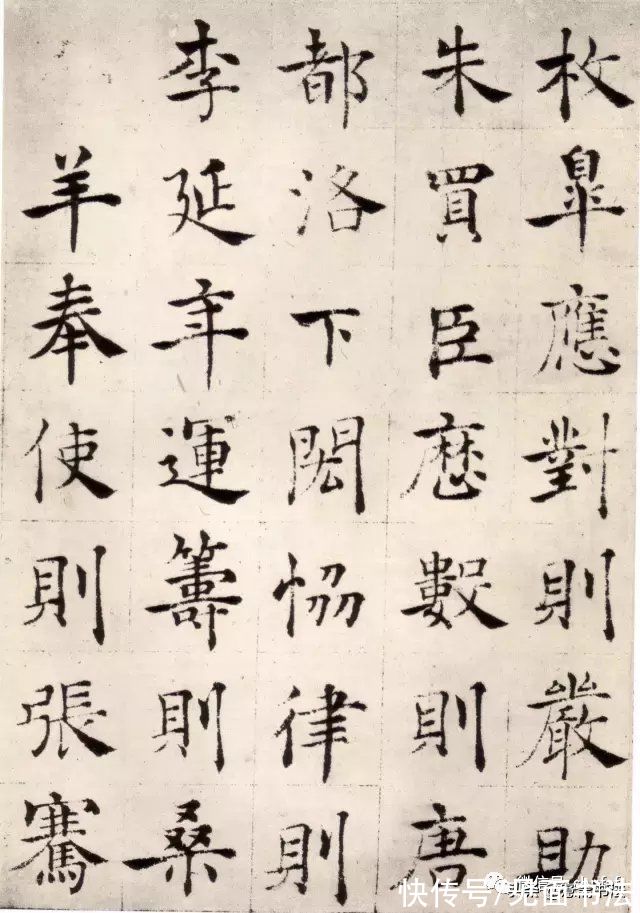 枚皐應對則嚴助
朱買臣歷數則唐
都洛下閎恊律則
李延年運籌則桑
羊奉使則張騫
快传号/晃面书法